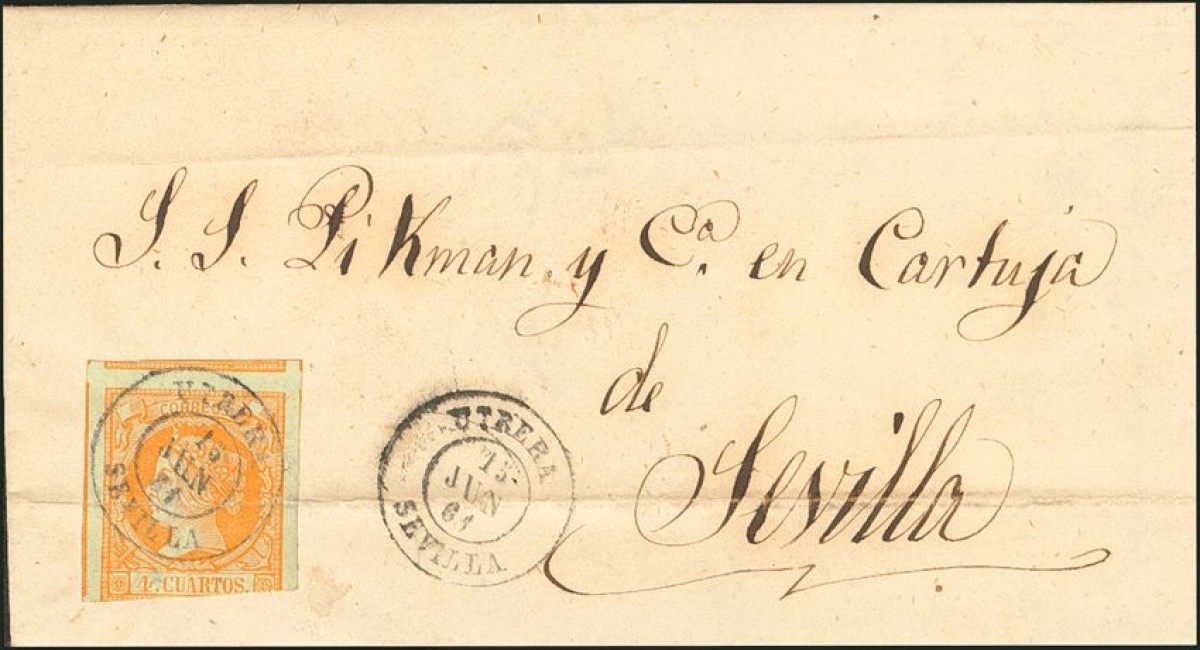 S. S. Pikman y Cª. en Cartuja
de
Sevilla
UTRERA
15
JUN
61
SEVILLA
CORREOS
UTRERA
15
JUN
61
SEVILLA
4. CUARTOS.